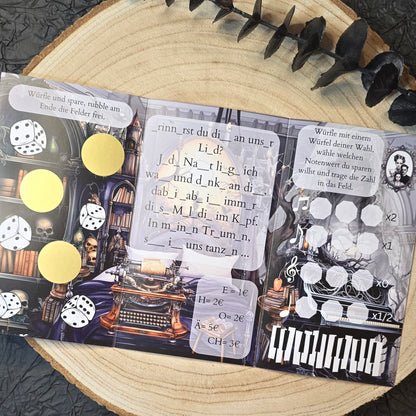 Würfle und spare, rubble am
Ende die Felder frei.
_rinn_rst du di__ an uns_r
Li_d?
J_d_ Na__t li_g_ ich
wa__ und d_nk_ an di__
dab_i _ab_ i__ imm_r
di_s_ M_l_di_ im K_pf.
In m_in_n Tr_um_n,
s___ i__ uns tanz_n ...
E = 1€
H= 2€
O= 2€
Ä= 5€
CH= 3€
Würfle mit einem
Würfel deiner Wahl,
wähle welchen
Notenwert du sparen
willst und trage die Zahl
in das Feld.
x2
x1
x1/2